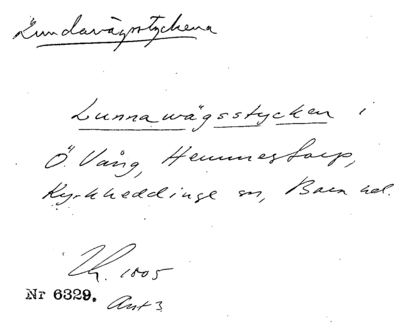 Lundavägsstyckena
Lunnawägsstycken i
Ö Vång, Hemmestorp,
Kyrkheddinge sn, Bara hd.
Lh. 1805
Nr 6329. Avt 3